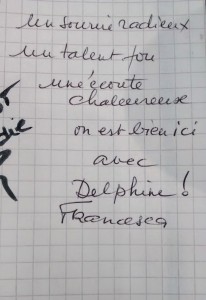 un sourire radieux
un talent fou
une écoute
chaleureuse
on est bien ici
avec
Delphine !
Francesca